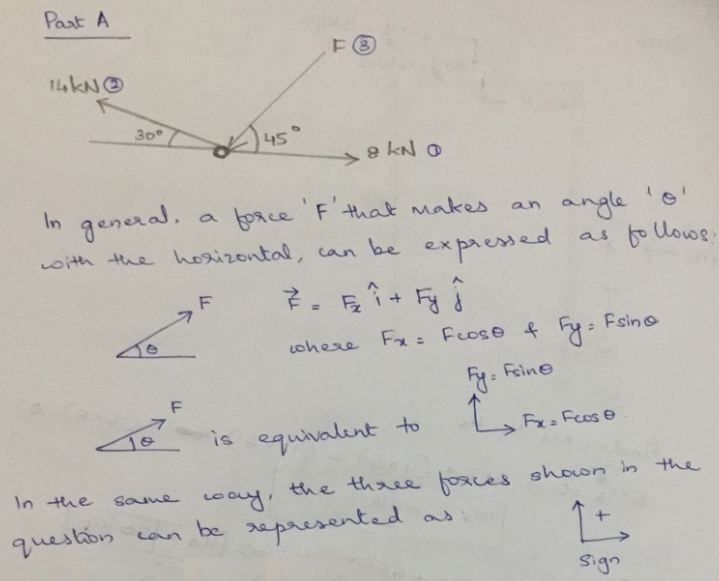 Part A
F ③
14kN ②
30° 45°
8 kN ①
In general, a force 'F' that makes an angle 'θ'
with the horizontal, can be expressed as follows:
F F⃗ = Fx î + Fy ĵ
θ where Fx = Fcosθ & Fy = Fsinθ
Fy = Fsinθ
F
θ is equivalent to Fx = Fcosθ
In the same way, the three forces shown in the
question can be represented as:
+
Sign